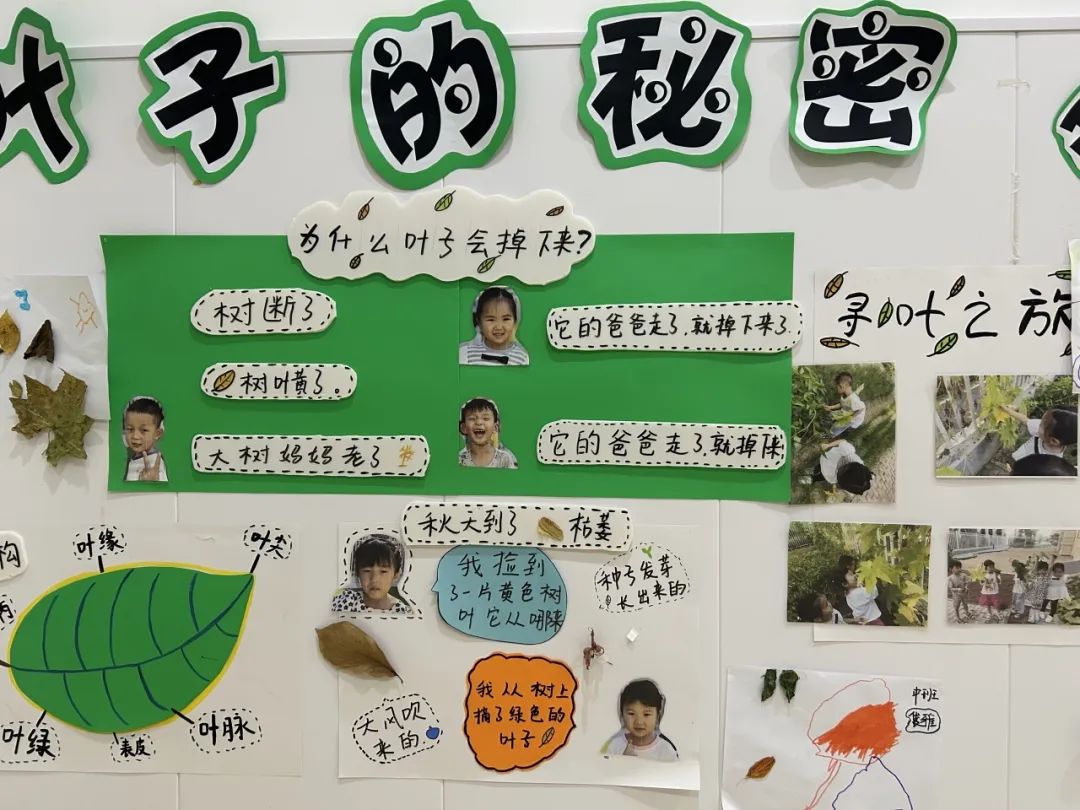 叶子的秘密
为什么叶子会掉下来?
树断了
树叶黄了。
大树妈妈老了
它的爸爸走了,就掉下来了.
它的爸爸走了,就掉下来
寻叶之旅
构
叶缘
叶尖
叶绿
表皮
叶脉
秋天到了 枯萎
我捡到
了一片黄色树
叶它从哪来
种子发芽
长出来的
大风吹
来的
我从树上
摘了绿色的
叶子
中班